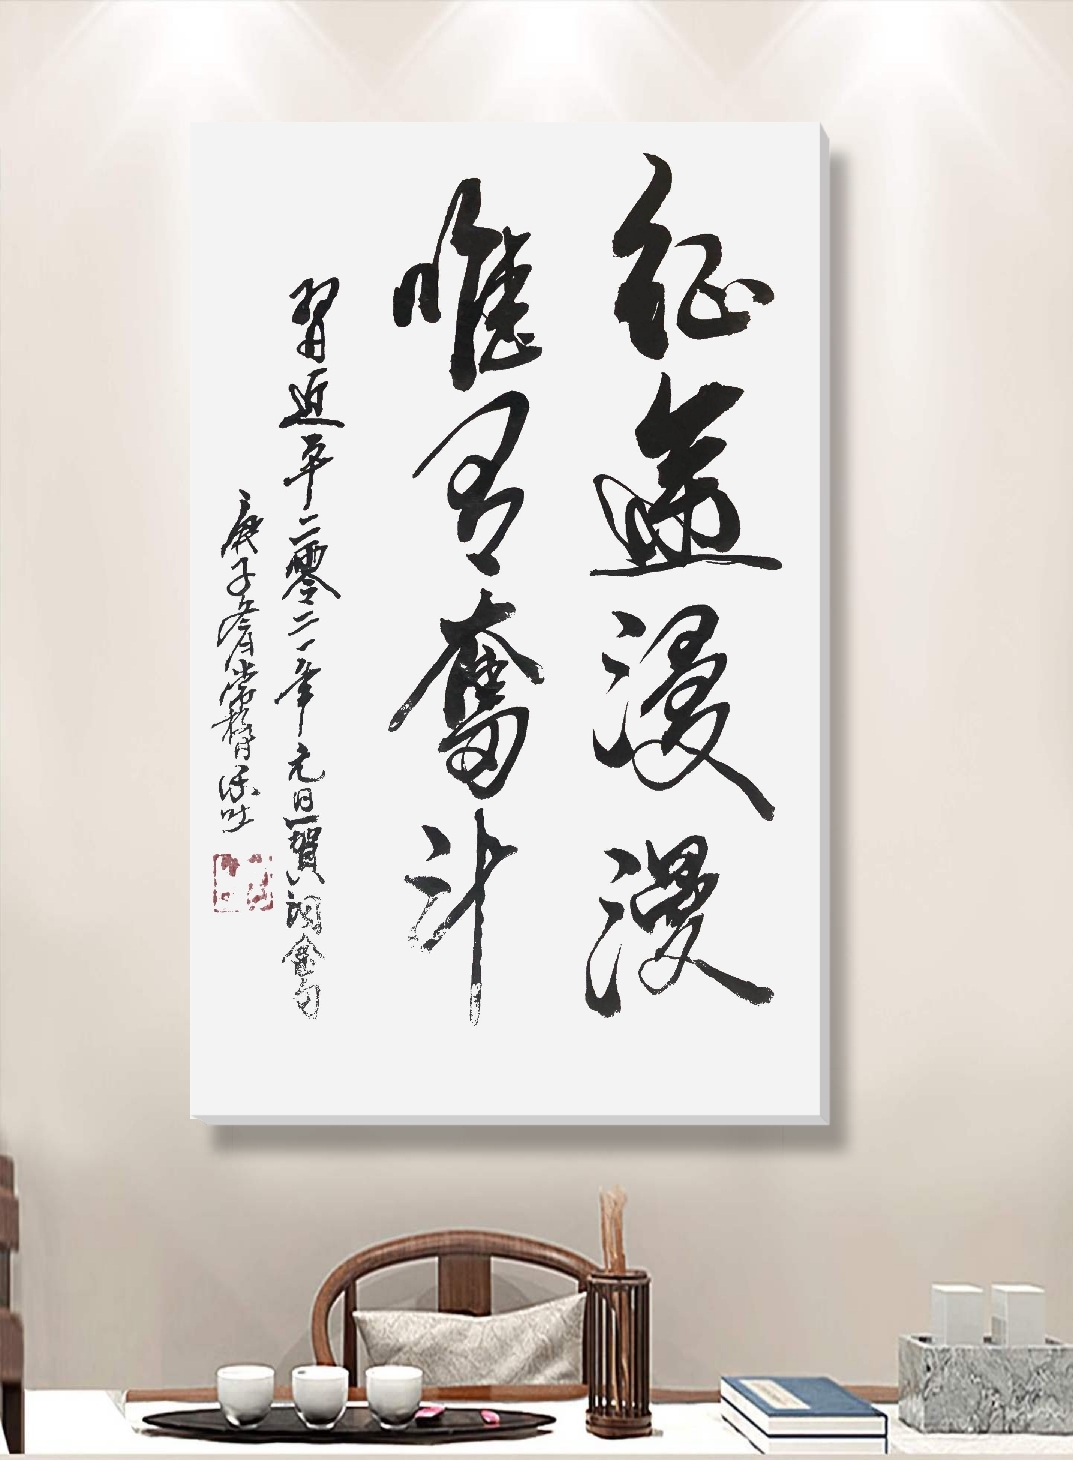 征途漫漫
唯有奋斗
习近平二零二一年元旦贺词金句
庚子